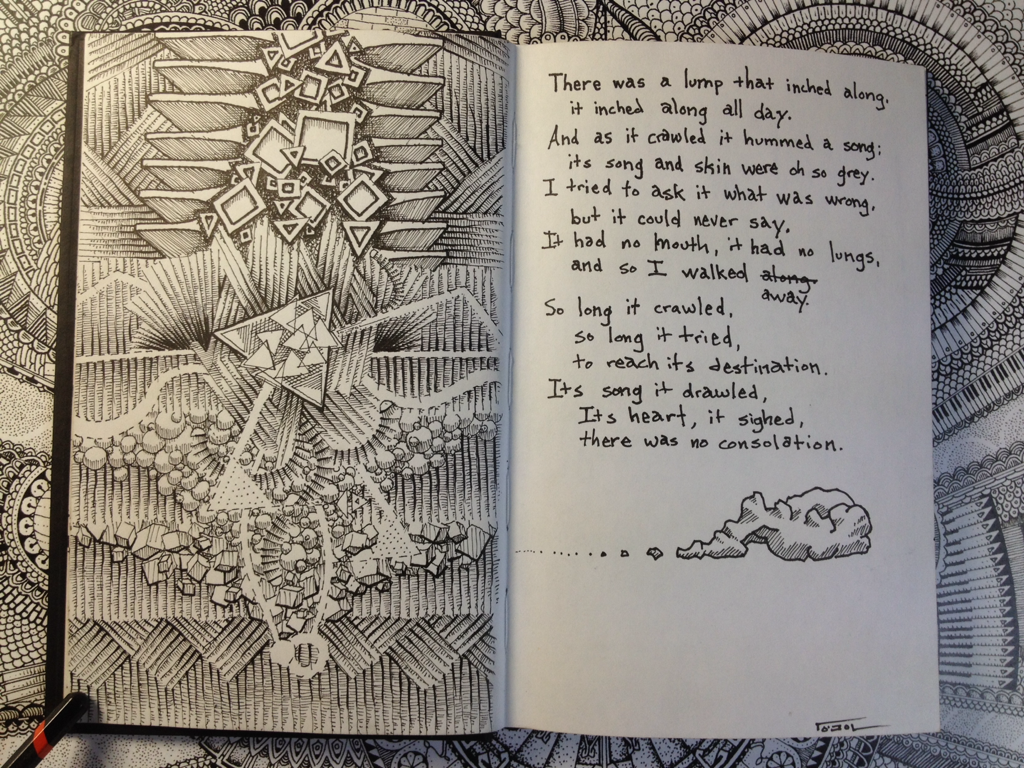 There was a lump that inched along.
it inched along all day.
And as it crawled it hummed a song;
its song and skin were oh so grey.
I tried to ask it what was wrong,
but it could never say.
It had no mouth, it had no lungs,
and so I walked along
away.
So long it crawled,
so long it tried,
to reach its destination.
Its song it drawled,
Its heart, it sighed,
there was no consolation.